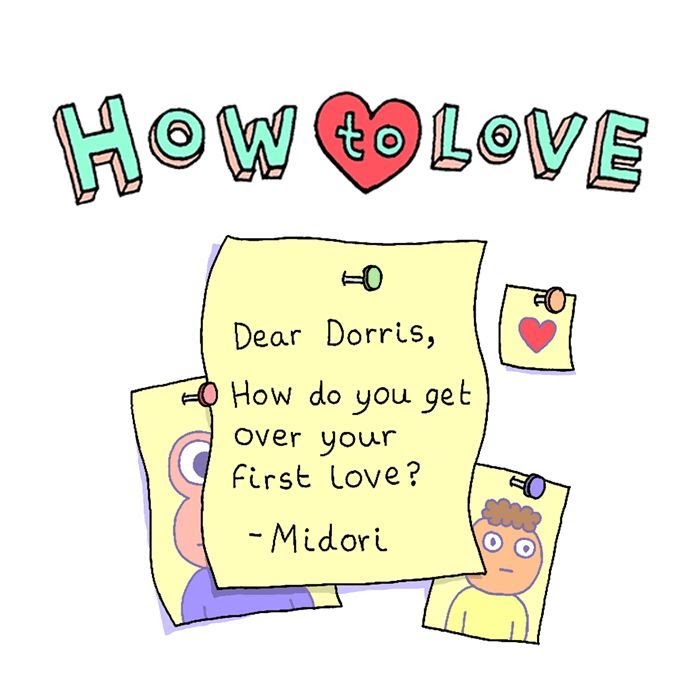 HOW to LOVE
Dear Dorris,
How do you get
over your
first love?
- Midori